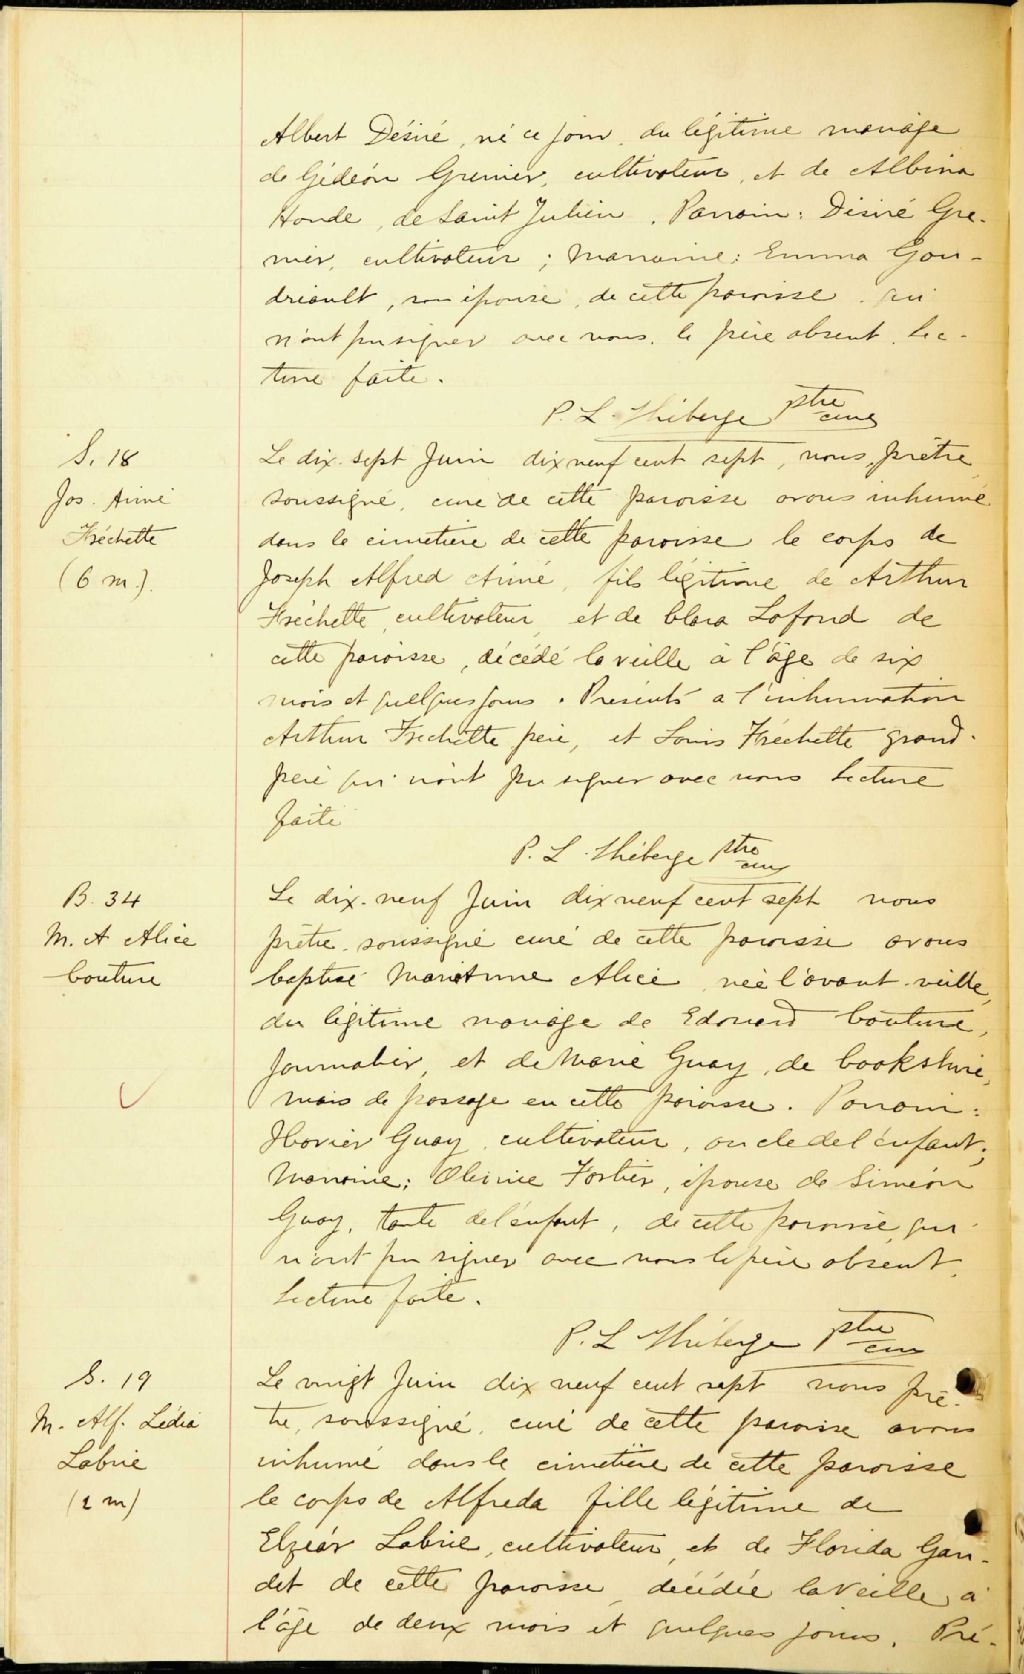 Albert Désiré, né ce jour, du légitime mariage
de Gédéon Grenier, cultivateur, et de Albina
Houde, de Saint Julien. Parrain: Désiré Gre-
nier, cultivateur; Marraine: Emma Gou-
driault, son épouse, de cette paroisse qui
n'ont pu signer avec nous, le père absent. Lec-
ture faite.
P. L. Théberge ptre
curé
S. 18
Jos. Aimé
Fréchette
(6 m.)
Le dix-sept Juin dix neuf cent sept, nous, prêtre
soussigné, curé de cette paroisse avons inhumé
dans le cimetière de cette paroisse le corps de
Joseph Alfred Aimé, fils légitime de Arthur
Fréchette, cultivateur, et de Clara Lafond de
cette paroisse, décédé la veille à l'âge de six
mois et quelques jours. Présents à l'inhumation
Arthur Fréchette père, et Louis Fréchette grand-
père qui n'ont pu signer avec nous Lecture
faite
P. L. Théberge ptre
curé
B. 34
M. A Alice
Couture
Le dix-neuf Juin dix neuf cent sept nous
prêtre soussigné curé de cette paroisse avons
baptisé Marie Alice, née l'avant-veille,
du légitime mariage de Edouard Couture,
journalier, et de Marie Guay, de Cookshire,
mais de passage en cette paroisse. Parrain:
Xavier Guay, cultivateur, oncle de l'enfant;
Marraine: Fortier, épouse de Siméon
Guay, tante de l'enfant, de cette paroisse, qui
n'ont pu signer avec nous le père absent.
Lecture faite.
P. L. Théberge ptre
curé
S. 19
M. Alf. Lédia
Labrie
(2 m)
Le vingt Juin dix neuf cent sept nous prê-
tre, soussigné, curé de cette paroisse avons
inhumé dans le cimetière de cette paroisse
le corps de Alfreda fille légitime de
Elzéar Labrie, cultivateur, et de Florida Gau-
det de cette paroisse, décédée la veille à
l'âge de deux mois et quelques jours. Pré-